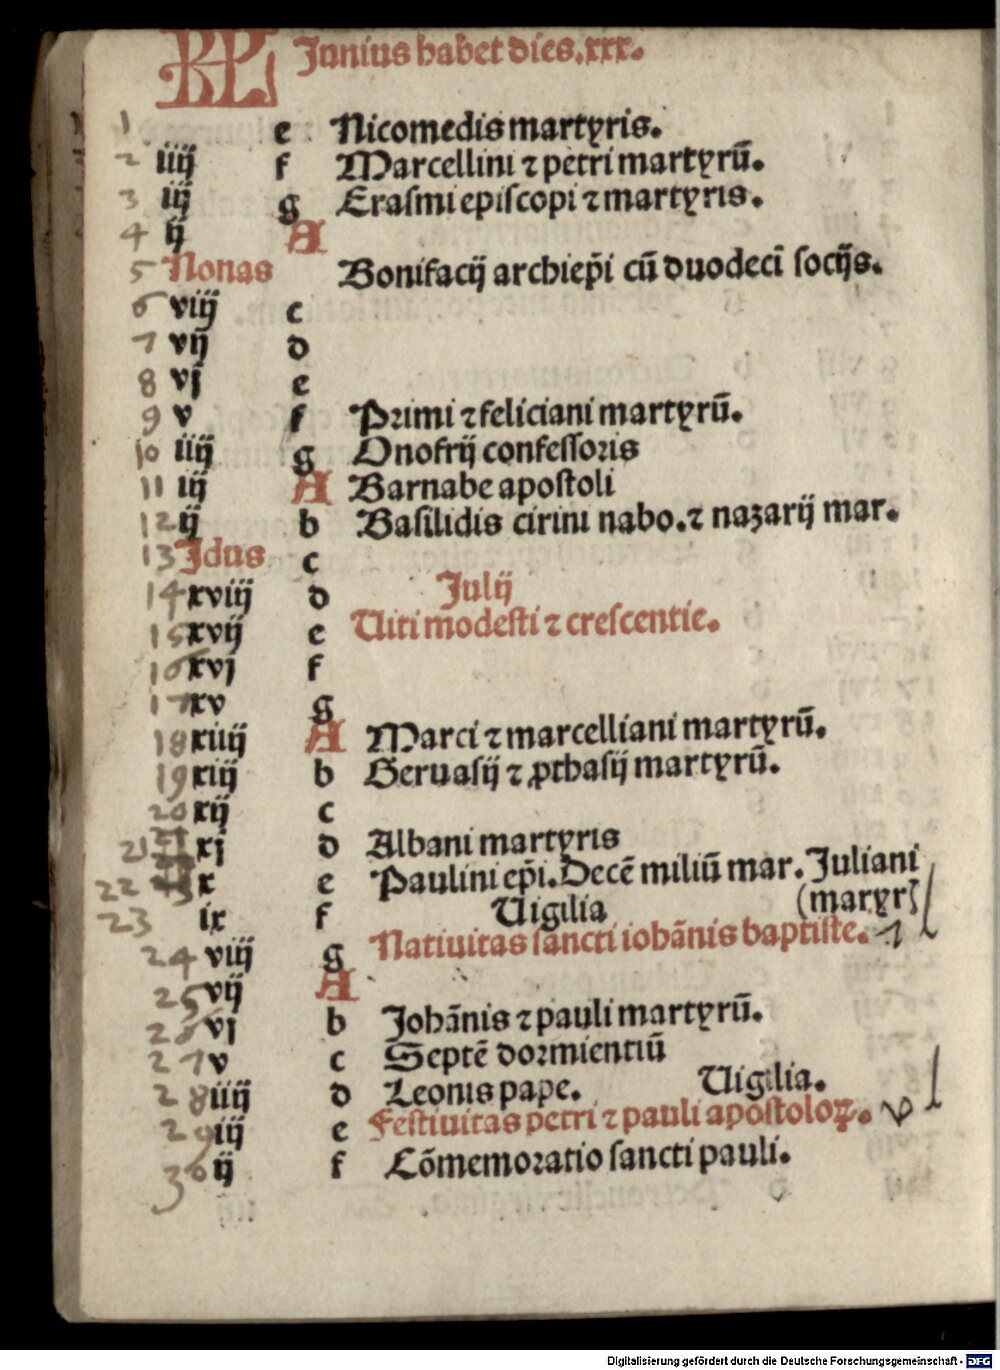 KL Junius habet dies.xxx.
1 e Nicomedis martyris.
2 iiij f Marcellini ⁊ petri martyrū.
3 iij g Erasmi episcopi ⁊ martyris.
4 ij A
5 Nonas Bonifacij archiep̄i cū duodecī socijs.
6 viij c
7 vij d
8 vj e
9 v f Primi ⁊ feliciani martyrū.
10 iiij g Onofrij confessoris
11 iij A Barnabe apostoli
12 ij b Basilidis cirini nabo.⁊ nazarij mar.
13 Jdus c
14 xviij d Julij
15 xvij e Uiti modesti ⁊ crescentie.
16 xvj f
17 xv g
18 xiiij A Marci ⁊ marcelliani martyrū.
19 xiij b Geruasij ⁊ ꝓthasij martyrū.
20 xij c
21 xj d Albani martyris
22 x e Paulini ep̄i. Decē miliū mar. Juliani
23 ix f Uigilia (martyrꝭ
24 viij g Natiuitas sancti iohānis baptiste.
25 vij A
26 vj b Johānis ⁊ pauli martyrū.
27 v c Septē dormientiū
28 iiij d Leonis pape. Uigilia.
29 iij e Festiuitas petri ⁊ pauli apostoloꝝ.
30 ij f Cōmemoratio sancti pauli.
Digitalisierung gefördert durch die Deutsche Forschungsgemeinschaft - DFG